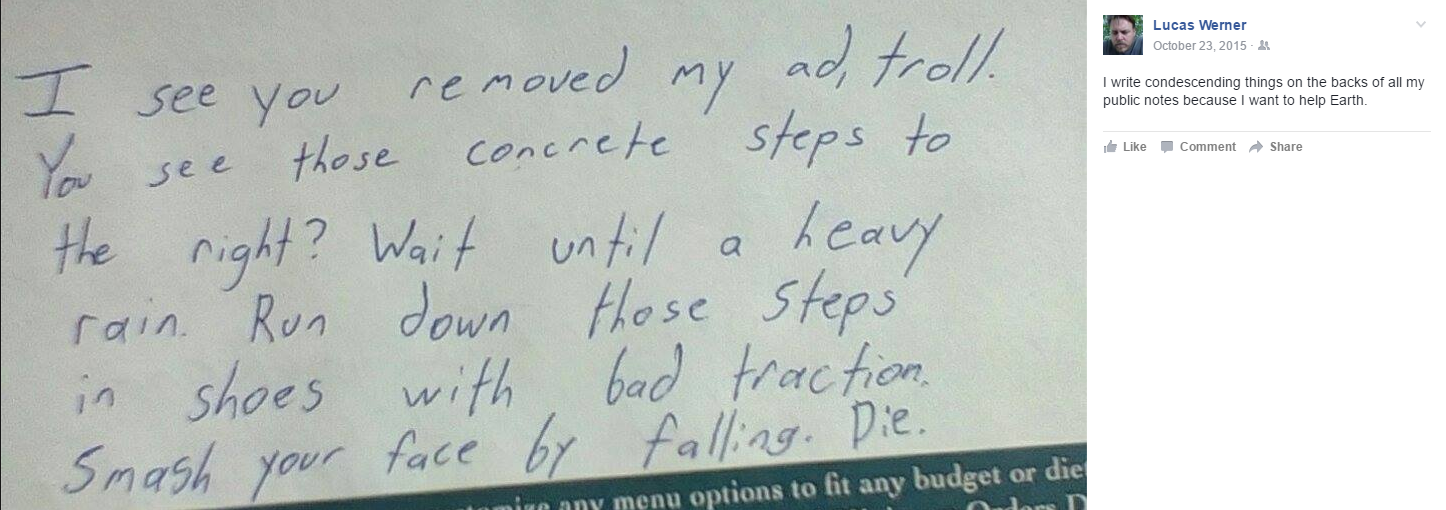 I see you removed my ad, troll.
You see those concrete steps to
the right? Wait until a heavy
rain. Run down those steps
in shoes with bad traction.
Smash your face by falling. Die.
any menu options to fit any budget or die
Lucas Werner
October 23, 2015 ·
I write condescending things on the backs of all my
public notes because I want to help Earth.
Like Comment Share